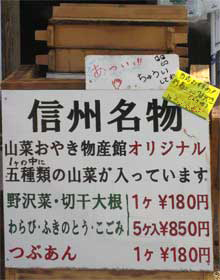 あつい!!
ちゅうい
信州名物
山菜おやき物産館オリジナル
1ヶの中に
五種類の山菜が入っています
野沢菜・切干大根 1ヶ ¥180円
わらび・ふきのとう・こごみ 5ヶ入¥850円
つぶあん 1ヶ ¥180円